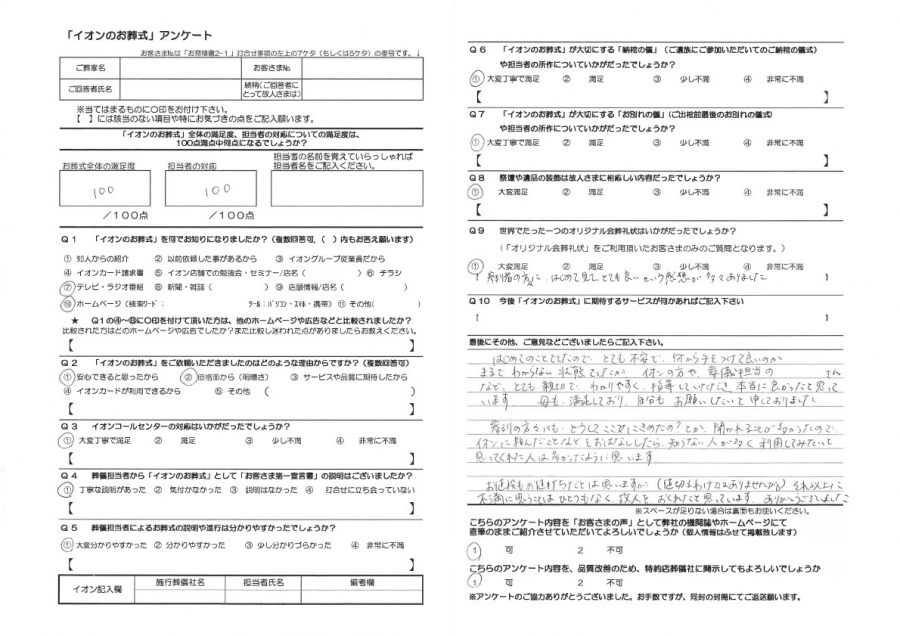 「イオンのお葬式」アンケート
お客さま№は「お見積書2-1」打合せ事項の左上の7ケタ（もしくは5ケタ）の番号です。↓
ご葬家名 お客さま№
ご回答者氏名 続柄(ご回答者にとって故人さまは)
※当てはまるものに○印をお付け下さい。
【 】には該当のない項目や特にお気づきの点をご記入願います。
「イオンのお葬式」全体の満足度、担当者の対応についての満足度は、
100点満点中何点になるでしょうか？
お葬式全体の満足度 担当者の対応 担当者の名前を覚えていらっしゃれば
担当者名をご記入ください。
100 100
／100点 ／100点
Q1 「イオンのお葬式」を何でお知りになりましたか？（複数回答可、（ ）内もお答え願います）
① 知人からの紹介 ② 以前依頼した事があるから ③ イオングループ従業員だから
④ イオンカード請求書 ⑤ イオン店舗での勉強会・セミナー/店名（ ）⑥ チラシ
⑦ テレビ・ラジオ番組 ⑧ 新聞・雑誌（ ）⑨ 店頭情報/店名（ ）
⑩ ホームページ（検索ワード： ツール：パソコン・スマホ・携帯）⑪ その他( )
★ Q1の④～⑩に○印を付けて頂いた方は、他のホームページや広告などと比較されましたか？
比較された方はどのホームページや広告でしたか？また比較し迷われた点がありましたらお教えください。
【 】
Q2 「イオンのお葬式」をご依頼いただきましたのはどのような理由からですか？（複数回答可）
① 安心できると思ったから ② 価格面から（明瞭さ） ③ サービスや品質に期待したから
④ イオンカードが利用できるから ⑤ その他（ ）
【 】
Q3 イオンコールセンターの対応はいかがだったでしょうか？
① 大変丁寧で満足 ② 満足 ③ 少し不満 ④ 非常に不満
【 】
Q4 葬儀担当者から「イオンのお葬式」として「お客さま第一宣言書」の説明はございましたか？
① 丁寧な説明があった ② 気付かなかった ③ 説明はなかった ④ 打合せに立ち会っていない
【 】
Q5 葬儀担当者によるお葬式の説明や進行は分かりやすかったでしょうか？
① 大変分かりやすかった ② 分かりやすかった ③ 少し分かりづらかった ④ 非常に不満
【 】
イオン記入欄 施行葬儀社名 担当者氏名 備者欄
Q6 「イオンのお葬式」が大切にする「納棺の儀」（ご遺族にご参加いただいてのご納棺の儀式）
や担当者の所作についていかがだったでしょうか？
① 大変丁寧で満足 ② 満足 ③ 少し不満 ④ 非常に不満
【 】
Q7 「イオンのお葬式」が大切にする「お別れの儀」（ご出棺前最後のお別れの儀式）
や担当者の所作についていかがだったでしょうか？
① 大変丁寧で満足 ② 満足 ③ 少し不満 ④ 非常に不満
【 】
Q8 祭壇や遺品の装飾は故人さまに相応しい内容だったでしょうか？
① 大変満足 ② 満足 ③ 少し不満 ④ 非常に不満
【 】
Q9 世界でたった一つのオリジナル会葬礼状はいかがだったでしょうか？
（「オリジナル会葬礼状」をご利用頂いたお客さまのみのご質問となります。）
① 大変満足 ② 満足 ③ 少し不満 ④ 非常に不満
【 参列者の方に、はじめて見て、とても良いという感想が多くありました 】
Q10 今後「イオンのお葬式」に期待するサービスが何かあればご記入下さい
【 】
最後にその他、ご意見などございましたらご記入下さい。
はじめてのことでしたので、とても不安で、何から手をつけて良いのか
まるでわからない状態でしたが、イオンの方や、葬儀担当の さん
など、とても親切で、わかりやすく、指導していただき本当に良かったと思って
います 母も、満足しており、自分もお願いしたいと申しておりました
参列の方々にも、どうしてここに決めたの？とか、聞かれることが多かったので、
イオンに頼んだことなどをおはなししたら、知らない人が多く利用してみたいと
思ってくれた人は多かったように思います
お値段もお値打ちだとは思いますが（値切るわけではありませんが）それ以上に
不満に思うことはひとつもなく、故人をおくれたと思っています。ありがとうございました
※スペースが足りない場合は裏面もお使いください。
こちらのアンケート内容を「お客さまの声」として弊社の機関誌やホームページにて
直筆のままご紹介させていただいてよろしいでしょうか（個人情報はふせて掲載致します）
1 可 2 不可
こちらのアンケート内容を、品質改善のため、特約店葬儀社に開示してもよろしいでしょうか
1 可 2 不可
※アンケートのご協力ありがとうございました。お手数ですが、同封の封筒にてご返送願います。